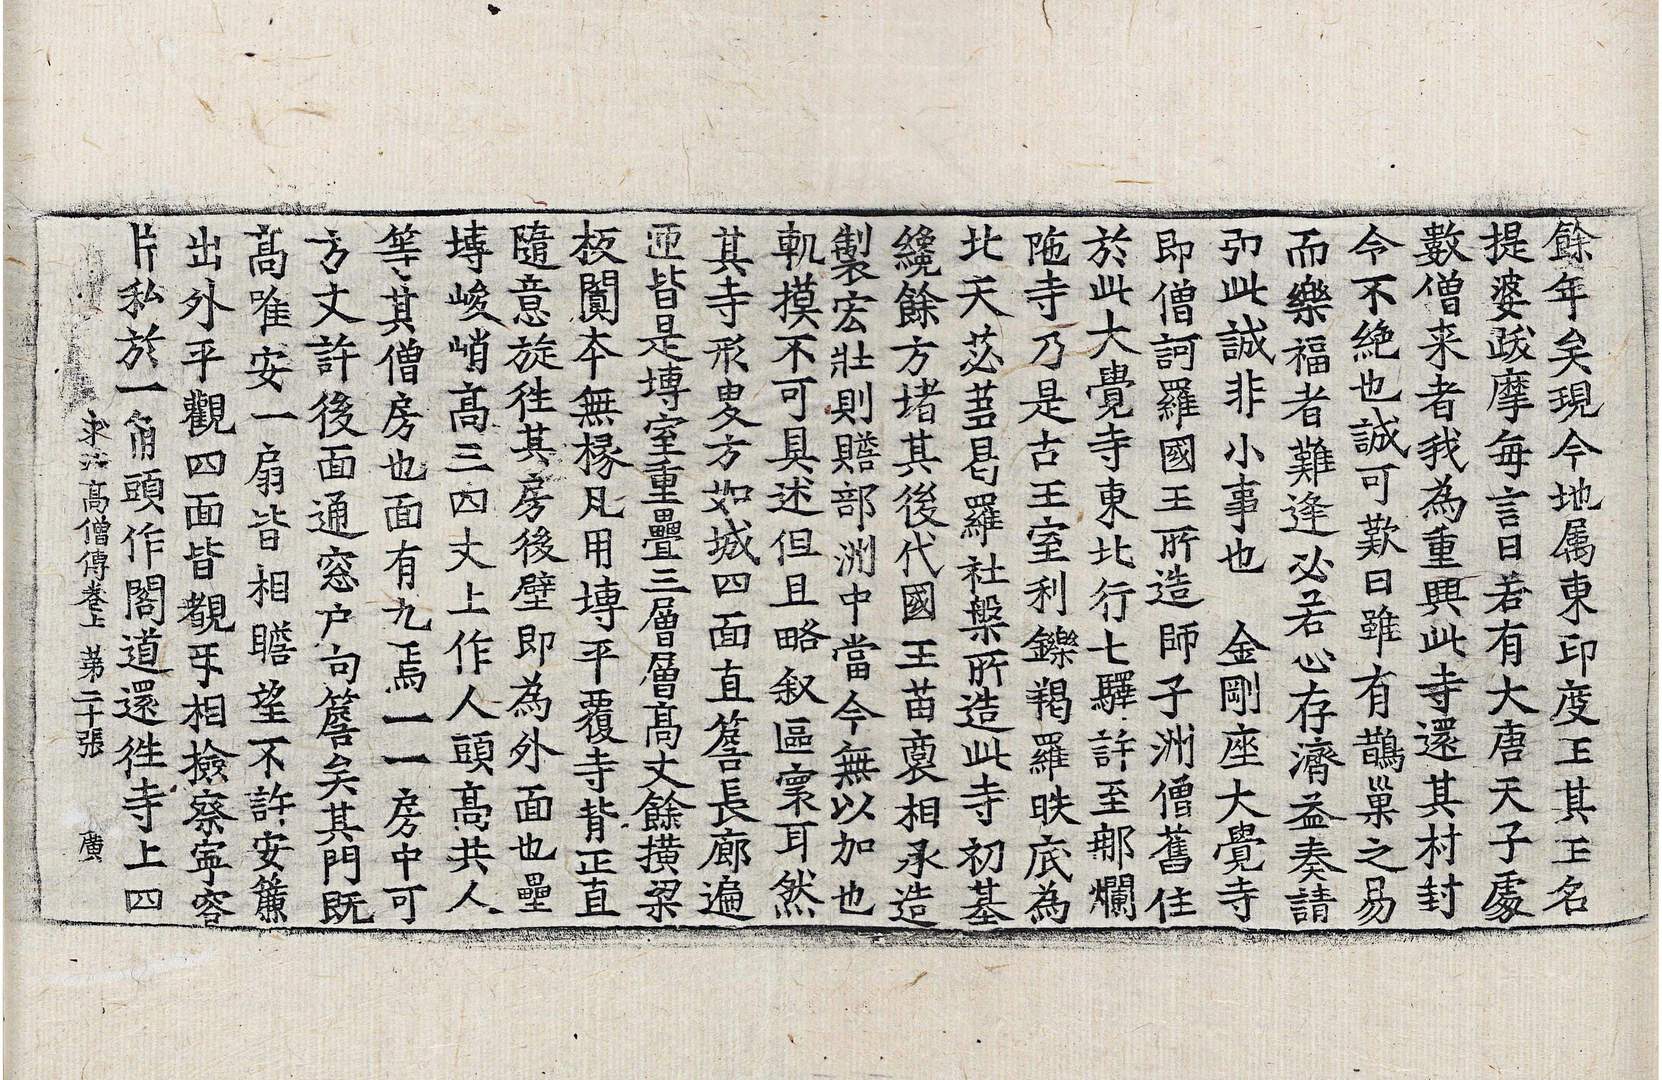 餘年矣現今地属東印度王其王名
提婆跋摩每言曰若有大唐天子處
數僧来者我為重興此寺還其村封
令不絶也誠可歎曰雖有鵲巢之易
而樂福者難逢必若心存濟益奏請
弘此誠非小事也　金剛座大覺寺
即僧訶羅國王所造師子洲僧舊住
於此大覺寺東北行七驛許至那爛
陁寺乃是古王室利鑠羯羅昳底為
北天苾蒭曷羅社槃所造此寺初基
纔餘方堵其後代國王苗裔相承造
製宏壯則贍部洲中當今無以加也
軌摸不可具述但且略叙區寰耳然
其寺形㽵方如城四面直簷長廊遍
迊皆是塼室重疊三層層髙丈餘撗梁
板闐夲無椽凡用塼平覆寺背正直
隨意旋徃其房後壁即為外面也壘
塼峻峭髙三四丈上作人頭髙共人
等其僧房也面有九焉一一房中可
方丈許後面通窓户向簷矣其門既
髙唯安一扇皆相瞻望不許安簾
出外平觀四面皆覩㸦相撿察寜容
片私於一角頭作閣道還徃寺上四
求法髙僧傳卷上　第二十張　廣